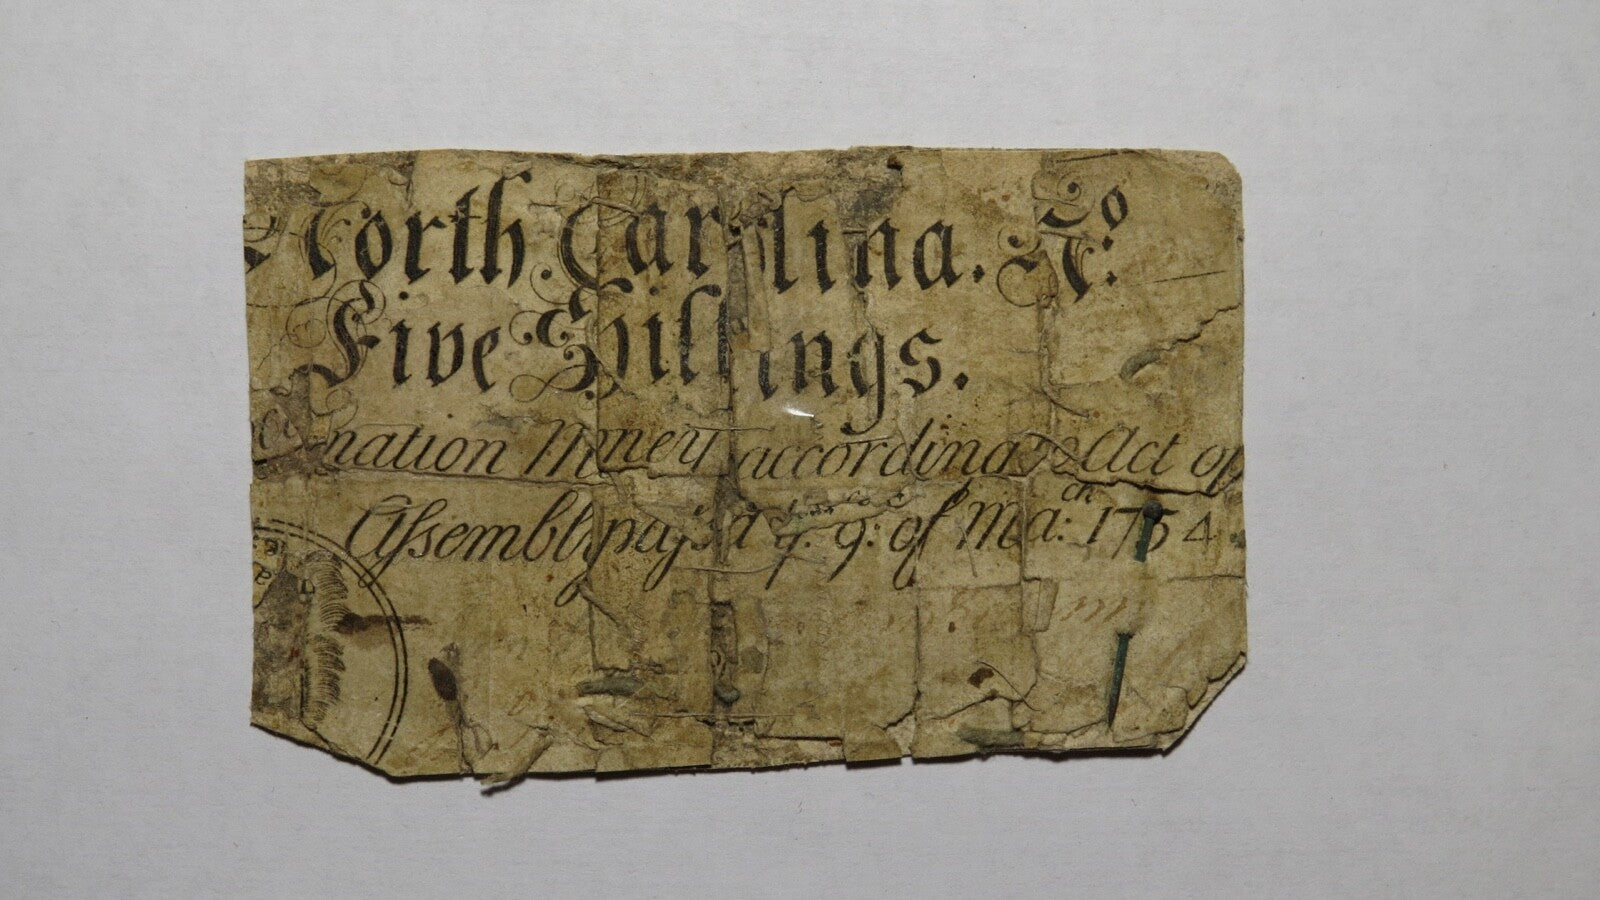 North Carolina. No.
Five Shillings.
nation Money according to Act of
Assembly pass'd ye. 9: of Mar:ch 1754